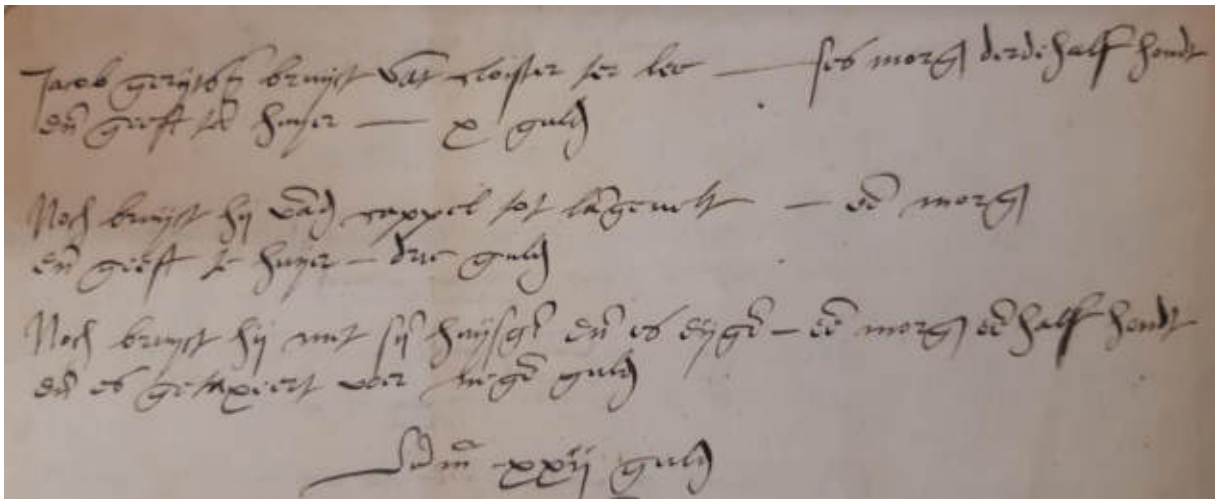 Jacob gerijtsz bruijct va͞t cloister ter lee — ses morg derdehalf hondt
en̄ geeft te huyer — x guld
Noch bruijct hij va͞d cappel tot la͞gevelt — ee͞ morg
en̄ geeft te huyer — drie guld
Noch bruijct hij mit sij͞ huijsge͞ en̄ es eijge͞ — ee͞ morg ee͞ half hondt
en̄ es getaxeert voer nege͞ guld
Som̄ xxij guld